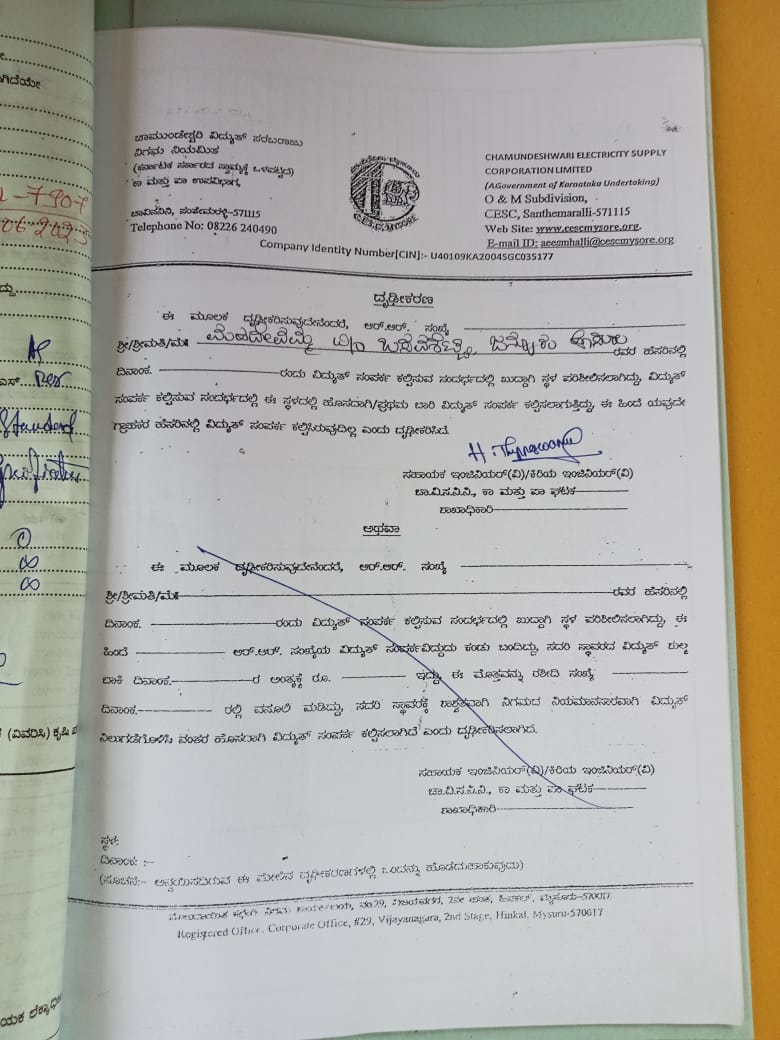 ಚಾಮುಂಡೇಶ್ವರಿ ವಿದ್ಯುತ್ ಸರಬರಾಜು
ನಿಗಮ ನಿಯಮಿತ
(ಕರ್ನಾಟಕ ಸರ್ಕಾರದ ಸ್ವಾಮ್ಯಕ್ಕೆ ಒಳಪಟ್ಟಿದೆ)
ಕಾ ಮತ್ತು ಪಾ ಉಪವಿಭಾಗ,
ಚಾವಿಸನಿನಿ, ಸಂತೇಮರಳ್ಳಿ-571115
Telephone No: 08226 240490
C.E.S.C. MYSORE
CHAMUNDESHWARI ELECTRICITY SUPPLY
CORPORATION LIMITED
(AGovernment of Karnataka Undertaking)
O & M Subdivision,
CESC, Santhemaralli-571115
Web Site: www.cescmysore.org.
E-mail ID: aeesmhalli@cescmysore.org
Company Identity Number[CIN]:- U40109KA20045GC035177
ದೃಢೀಕರಣ
ಈ ಮೂಲಕ ದೃಢೀಕರಿಸುವುದೇನೆಂದರೆ, ಆರ್.ಆರ್. ಸಂಖ್ಯೆ
ಶ್ರೀ/ಶ್ರೀಮತಿ/ಮೆ ಮಹದೇವಮ್ಮ ರವರ ಹೆಸರಿನಲ್ಲಿ
ದಿನಾಂಕ. ರಂದು ವಿದ್ಯುತ್ ಸಂಪರ್ಕ ಕಲ್ಪಿಸುವ ಸಂದರ್ಭದಲ್ಲಿ ಖುದ್ದಾಗಿ ಸ್ಥಳ ಪರಿಶೀಲಿಸಲಾಗಿದ್ದು, ವಿದ್ಯುತ್
ಸಂಪರ್ಕ ಕಲ್ಪಿಸುವ ಸಂದರ್ಭದಲ್ಲಿ ಈ ಸ್ಥಳದಲ್ಲಿ ಹೊಸದಾಗಿ/ಪ್ರಥಮ ಬಾರಿ ವಿದ್ಯುತ್ ಸಂಪರ್ಕ ಕಲ್ಪಿಸಲಾಗುತ್ತಿದ್ದು, ಈ ಹಿಂದೆ ಯವುದೇ
ಗ್ರಾಹಕರ ಹೆಸರಿನಲ್ಲಿ ವಿದ್ಯುತ್ ಸಂಪರ್ಕ ಕಲ್ಪಿಸಿರುವುದಿಲ್ಲ ಎಂದು ದೃಢೀಕರಿಸಿದೆ.
ಸಹಾಯಕ ಇಂಜಿನಿಯರ್(ವಿ)/ಕಿರಿಯ ಇಂಜಿನಿಯರ್(ವಿ)
ಚಾ.ವಿ.ಸ.ನಿ.ನಿ., ಕಾ ಮತ್ತು ಪಾ ಘಟಕ
ಶಾಖಾಧಿಕಾರಿ
ಅಥವಾ
ಈ ಮೂಲಕ ದೃಢೀಕರಿಸುವುದೇನೆಂದರೆ, ಆರ್.ಆರ್. ಸಂಖ್ಯೆ
ಶ್ರೀ/ಶ್ರೀಮತಿ/ಮೆ ರವರ ಹೆಸರಿನಲ್ಲಿ
ದಿನಾಂಕ. ರಂದು ವಿದ್ಯುತ್ ಸಂಪರ್ಕ ಕಲ್ಪಿಸುವ ಸಂದರ್ಭದಲ್ಲಿ ಖುದ್ದಾಗಿ ಸ್ಥಳ ಪರಿಶೀಲಿಸಲಾಗಿದ್ದು, ಈ
ಹಿಂದೆ ಆರ್.ಆರ್. ಸಂಖ್ಯೆಯ ವಿದ್ಯುತ್ ಸಂಪರ್ಕವಿದ್ದುದು ಕಂಡು ಬಂದಿದ್ದು, ಸದರಿ ಸ್ಥಾವರದ ವಿದ್ಯುತ್ ಶುಲ್ಕ
ಬಾಕಿ ದಿನಾಂಕ. ರ ಅಂತ್ಯಕ್ಕೆ ರೂ. ಇದ್ದು, ಈ ಮೊತ್ತವನ್ನು ರಶೀದಿ ಸಂಖ್ಯೆ
ದಿನಾಂಕ. ರಲ್ಲಿ ವಸೂಲಿ ಮಡಿದ್ದು, ಸದರಿ ಸ್ಥಾವರಕ್ಕೆ ಶಾಶ್ವತವಾಗಿ ನಿಗಮದ ನಿಯಮಾನಸಾರವಾಗಿ ವಿದ್ಯುತ್
ನಿಲುಗಡೆಗೊಳಿಸಿ ನಂತರ ಹೊಸದಾಗಿ ವಿದ್ಯುತ್ ಸಂಪರ್ಕ ಕಲ್ಪಿಸಲಾಗಿದೆ ಎಂದು ದೃಢೀಕರಿಸಲಾಗಿದೆ.
ಸಹಾಯಕ ಇಂಜಿನಿಯರ್(ವಿ)/ಕಿರಿಯ ಇಂಜಿನಿಯರ್(ವಿ)
ಚಾ.ವಿ.ಸ.ನಿ.ನಿ., ಕಾ ಮತ್ತು ಪಾ ಘಟಕ
ಶಾಖಾಧಿಕಾರಿ
ಸ್ಥಳ:
ದಿನಾಂಕ: :-
(ಸೂಚನೆ:- ಅನ್ವಯಿಸದಿರುವ ಈ ಮೇಲಿನ ದೃಢೀಕರಣಗಳಲ್ಲಿ ಒಂದನ್ನು ಹೊಡೆದುಹಾಕುವುದು)
Registered Office. Corporate Office, #29, Vijayanagara, 2nd Stage, Hinkal, Mysuru-570017